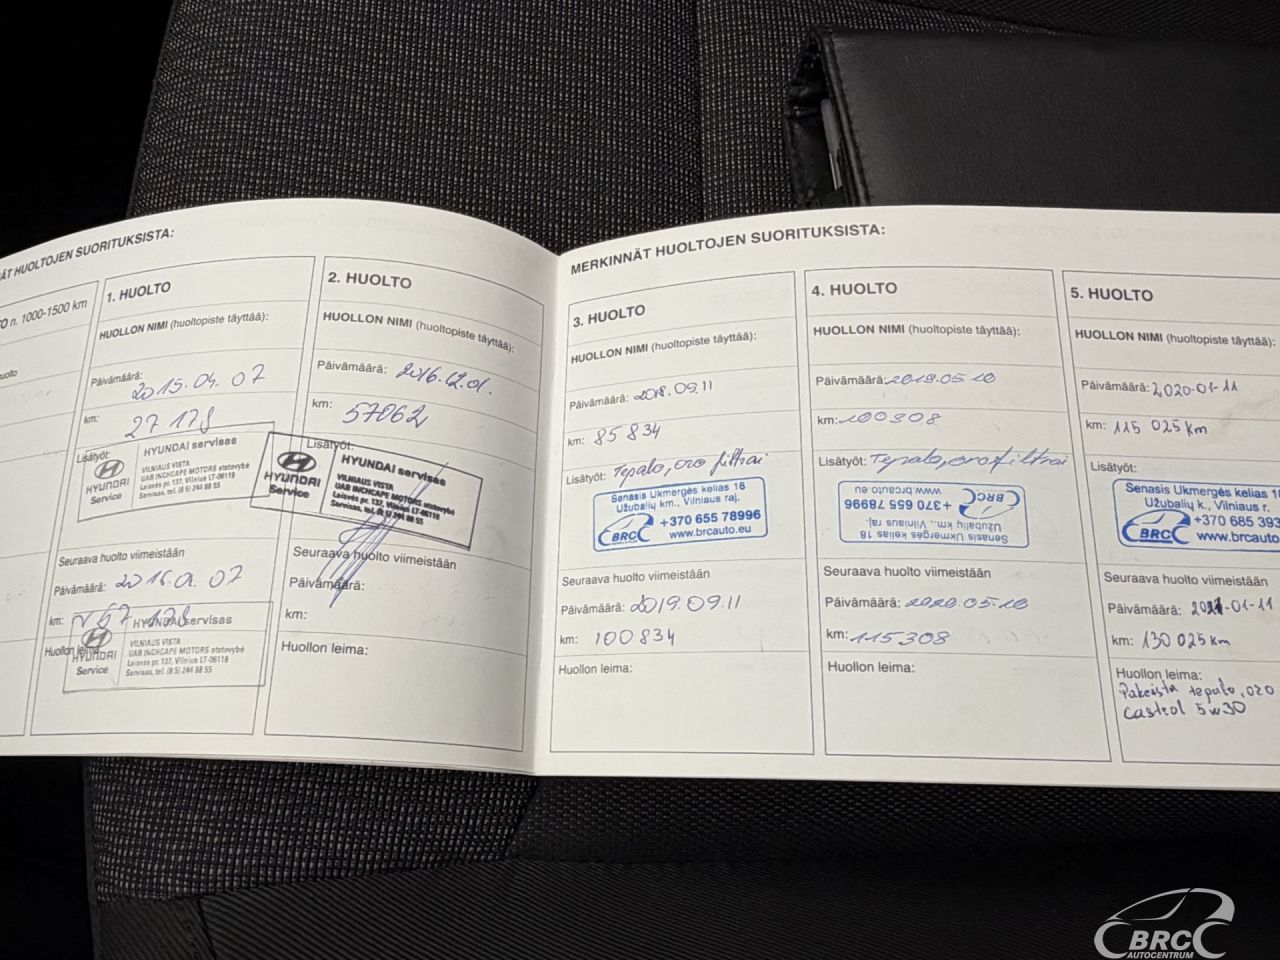 ÄT HUOLTOJEN SUORITUKSISTA:
TO n. 1000-1500 km
1. HUOLTO
HUOLLON NIMI (huoltopiste täyttää):
Päivämäärä: 2015.04.07
km: 27 178
Lisätyöt:
HYUNDAI Service
HYUNDAI servisas
VILNIAUS VISTA
UAB INCHCAPE MOTORS atstovybė
Laisvės pr. 137, Vilnius LT-06118
Servisas, tel. (8 5) 244 88 55
Seuraava huolto viimeistään
Päivämäärä:
km:
Huollon leima:
HYUNDAI Service
HYUNDAI servisas
VILNIAUS VISTA
UAB INCHCAPE MOTORS atstovybė
Laisvės pr. 137, Vilnius LT-06118
Servisas, tel. (8 5) 244 88 55
2. HUOLTO
HUOLLON NIMI (huoltopiste täyttää):
Päivämäärä: 2016.12.01.
km: 57062
Lisätyöt:
HYUNDAI Service
HYUNDAI servisas
VILNIAUS VISTA
UAB INCHCAPE MOTORS atstovybė
Laisvės pr. 137, Vilnius LT-06118
Servisas, tel. (8 5) 244 88 55
Seuraava huolto viimeistään
Päivämäärä:
km:
Huollon leima:
MERKINNÄT HUOLTOJEN SUORITUKSISTA:
3. HUOLTO
HUOLLON NIMI (huoltopiste täyttää):
Päivämäärä: 2018.09.11
km: 85 834
Lisätyöt: Tepalo, oro filtrai
Senasis Ukmergės kelias 18
Užubalių km., Vilniaus raj.
BRC +370 655 78996
www.brcauto.eu
Seuraava huolto viimeistään
Päivämäärä: 2019.09.11
km: 100834
Huollon leima:
4. HUOLTO
HUOLLON NIMI (huoltopiste täyttää):
Päivämäärä: 2019.05.10
km: 100308
Lisätyöt: Tepalo, oro filtrai
Senasis Ukmergės kelias 18
Užubalių km., Vilniaus raj.
BRC +370 655 78996
www.brcauto.eu
Seuraava huolto viimeistään
Päivämäärä: 2020.05.10
km: 115308
Huollon leima:
5. HUOLTO
HUOLLON NIMI (huoltopiste täyttää):
Päivämäärä: 2020-01-11
km: 115 025 km
Lisätyöt:
Senasis Ukmergės kelias 18
Užubalių k., Vilniaus r.
BRC +370 685 393
www.brcauto
Seuraava huolto viimeistään
Päivämäärä: 2021-01-11
km: 130 025 km
Huollon leima:
Pakeista tepalo, oro
Castrol 5w30
BRC
AUTOCENTRUM